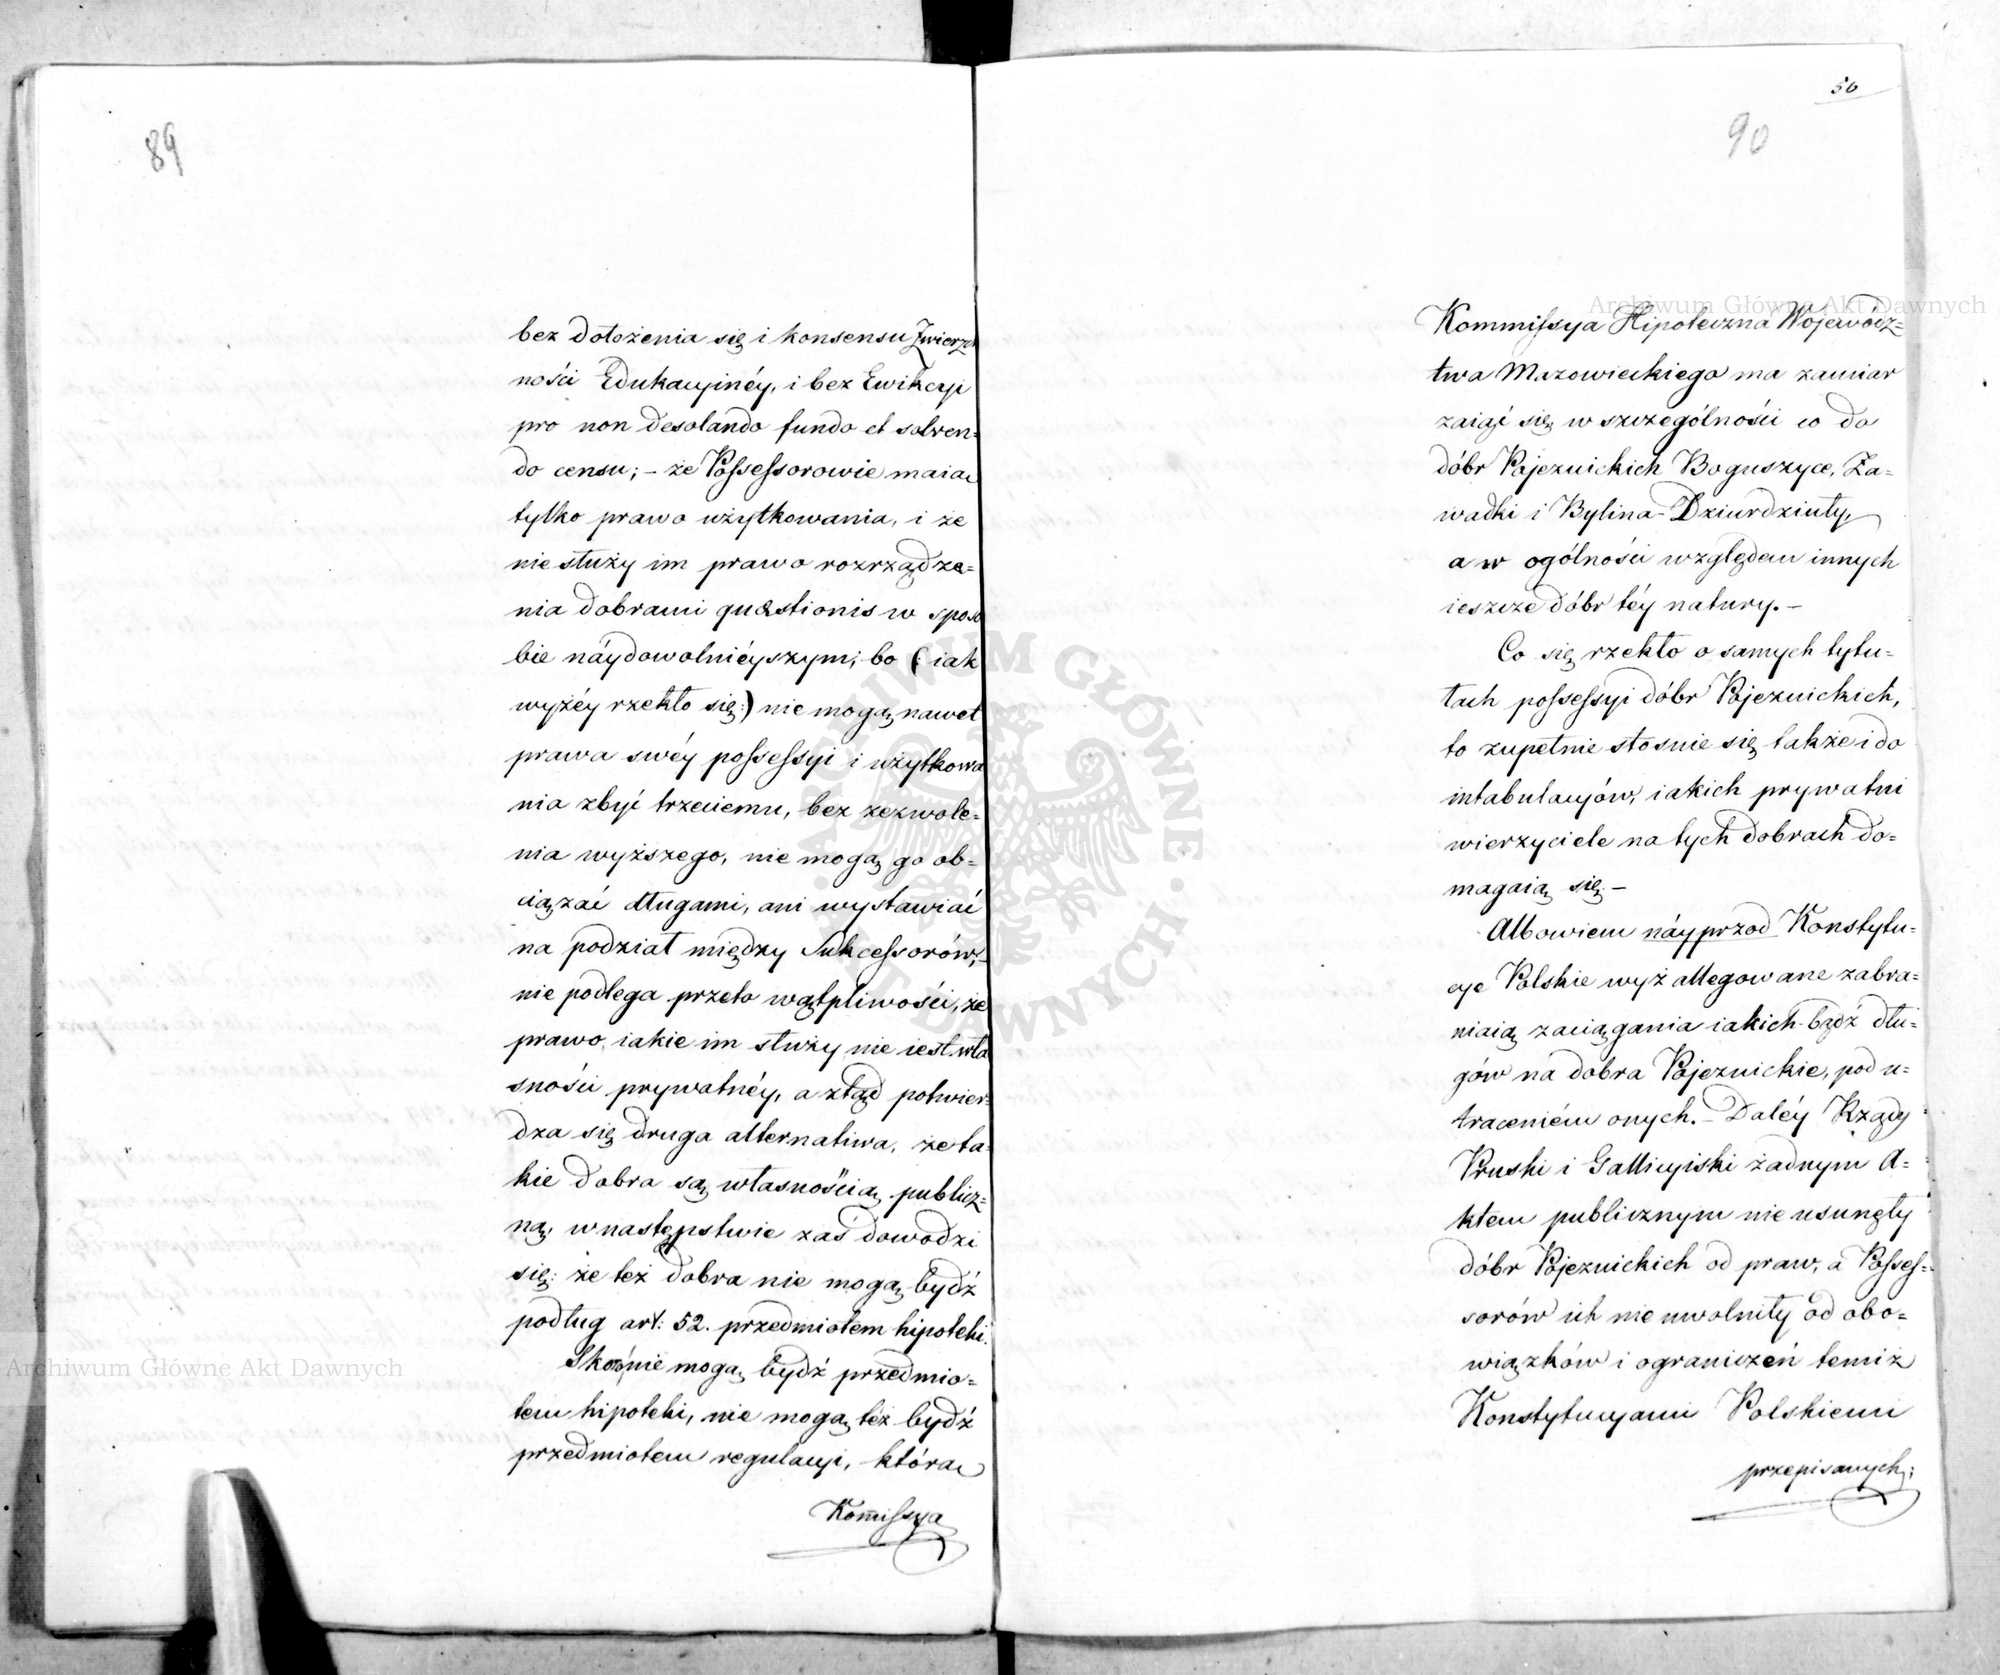 89
bez dołożenia się i konsensu Zwierzch
ności Edukacyinéy, i bez Ewikcyi
pro non desolando fundo et solven=
do censu; – że Possessorowie maią
tylko prawo użytkowania, i że
nie służy im prawo rozrządze=
nia dobrami quæstionis w sposo
bie náydowolniéyszym; bo (: iak
wyżéy rzekło się :) nie mogą nawet
prawa swéy possessyi i użytkowa
nia zbyć trzeciemu, bez zezwole=
nia wyższego, nie mogą go ob=
ciążać długami, ani wystawiać
na podział między Sukcessorów, –
nie podlega przeto wątpliwości, że
prawo, iakie im służy nie iest wła
sności prywatnéy, a ztąd potwier=
dza się druga alternatiwa, że ta=
kie dobra są własnością publicz=
ną, w następstwie zaś dowodzi
się: że też dobra nie mogą bydź
podług art: 52. przedmiotem hipoteki.
Skoro nie mogą bydź przedmio=
tem hipoteki, nie mogą téż bydź
przedmiotem regulacyi, którą
Kom̄issya
50
90
Kommissya Hipoteczna Wojewódz=
twa Mazowieckiego ma zamiar
zaiąć się w szczególności co do
dóbr Pojezuickich Boguszyce, Za=
wadki i Bylina-Dziurdziuty,
a w ogólności względem innych
ieszcze dóbr téy natury. –
Co się rzekło o samych tytu=
łach possessyi dóbr Pojezuickich,
to zupełnie stosuie się także i do
intabulacyów, iakich prywatni
wierzyciele na tych dobrach do=
magaią się. –
Albowiem náyprzod Konstytu=
cye Polskie wyż allegowane zabra=
niaią zaciągania iakich-bądź dłu=
gów na dobra Pojezuickie, pod u=
traceniém onych. – Daléy Rządy
Pruski i Gallicyiski żadnym A=
ktem publicznym nie usunęły
dóbr Pojezuickich od praw, a Posses=
sorów ich nie uwolniły od obo=
wiązków i ograniczeń temiż
Konstytucyami Polskiemi
przepisanych;
Archiwum Główne Akt Dawnych
Archiwum Główne Akt Dawnych
ARCHIWUM GŁÓWNE AKT DAWNYCH